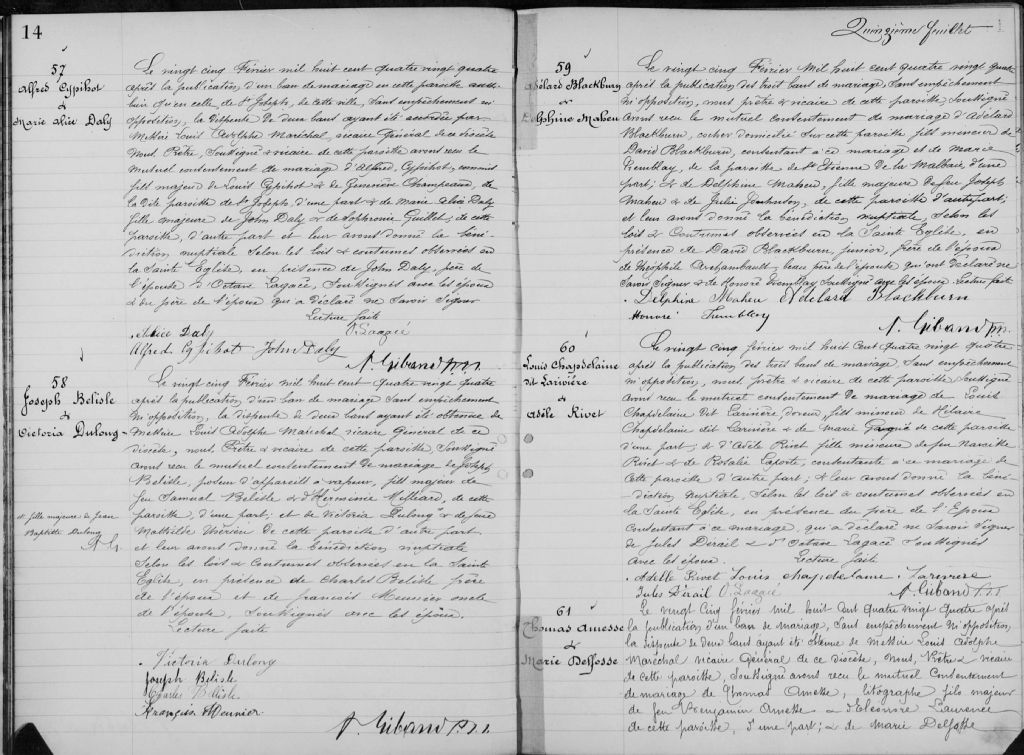 14
57
Alfred Cypihot
&
Marie Alice Daly
Le vingt cinq Février mil huit cent quatre vingt quatre
après la publication d'un ban de mariage en cette paroisse aussi
bien qu'en celle de St Joseph, de cette ville, sans empêchement ni
opposition, la dispense de deux bans ayant été accordée par
Messire Louis Adolphe Maréchal, vicaire Général de ce diocèse
nous Prêtre, soussigné & vicaire de cette paroisse avons reçu le
mutuel consentement de mariage d'Alfred, Cypihot, commis
fils majeur de Louis Cypihot & de Geneviève Champeaux, de
la dite paroisse de St Joseph, d'une part & de Marie Alice Daly
fille majeure de John Daly & de Sophronie Guillet, de cette
paroisse, d'autre part et leur avons donné la béné-
diction nuptiale selon les lois & coutumes observées en
la Sainte Eglise, en présence de John Daly, père de
l'épouse & d'Octave Lagacé, soussignés avec les époux
& du père de l'époux qui a déclaré ne savoir signer
Lecture faite
Alice Daly O. Lagacé
Alfred Cypihot John Daly
A. Giband ptre
58
Joseph Belisle
&
Victoria Dulong
Le vingt cinq Février mil huit cent quatre vingt quatre
après la publication d'un ban de mariage sans empêchement
ni opposition, la dispense de deux bans ayant été obtenue de
Messire Louis Adolphe Maréchal vicaire Général de ce
diocèse, nous, Prêtre & vicaire de cette paroisse, soussigné
avons reçu le mutuel consentement de mariage de Joseph
Belisle, poseur d'appareils à vapeur, fils majeur de
feu Samuel Belisle & d'Herminie de cette
paroisse, d'une part; et de Victoria Dulong & de feue
Mathilde de cette paroisse d'autre part
et fille majeure de Jean
Baptiste Dulong
A. G.
et leur avons donné la bénédiction nuptiale
selon les lois & coutumes observées en la Sainte
Eglise, en présence de Charles Belisle frère
de l'époux et de François Meunier oncle
de l'épouse, soussignés avec les époux.
Lecture faite
Victoria Dulong
Joseph Belisle
Charles Belisle
François Meunier
A. Giband ptre
Quinzième feuillet
59
Adélard Blackburn
&
Delphine Maheu
Le vingt cinq Février mil huit cent quatre vingt quatre
après la publication des trois bans de mariage, sans empêchement
ni opposition, nous prêtre & vicaire de cette paroisse, soussigné
avons reçu le mutuel consentement de mariage d'Adélard
Blackburn, cocher domicilié sur cette paroisse fils mineur de
David Blackburn, consentant à ce mariage et de Marie
Tremblay, de la paroisse de St Etienne de la Malbaie d'une
part; & de Delphine Maheu, fille majeure de feu Joseph
Maheu & de Julie Johnston, de cette paroisse d'autre part;
et leur avons donné la bénédiction nuptiale, selon les
lois & coutumes observées en la Sainte Eglise, en
présence de David Blackburn, junior, frère de l'époux
de Théophile Archambault, beau père de l'épouse qui ont déclaré ne
savoir signer & de Honoré Tremblay soussigné avec les époux. Lecture faite
Delphine Maheu Adelard Blackburn
Honoré Trembley
A. Giband ptre
60
Louis Chapdelaine
dit Larivière
&
Adèle Rivet
Le vingt cinq février mil huit cent quatre vingt quatre
après la publication des trois bans de mariage, sans empêchement
ni opposition, nous prêtre & vicaire de cette paroisse soussigné
avons reçu le mutuel consentement de mariage de Louis
Chapdelaine dit Larivière fils mineur de Hilaire
Chapdelaine dit Larivière & de Marie de cette paroisse
d'une part; & d'Adèle Rivet fille mineure de feu Narcisse
Rivet & de Rosalie Laporte, consentante à ce mariage de
cette paroisse d'autre part; & leur avons donné la béné-
diction nuptiale, selon les lois & coutumes observées en
la Sainte Eglise, en présence du père de l'époux
consentant à ce mariage, qui a déclaré ne savoir signer
de Jules Dérail & d'Octave Lagacé soussignés
avec les époux. Lecture faite
Adelle Rivet Louis chapdelaine Larivière
Jules Dérail O. Lagacé
A. Giband ptre
61
Thomas Amesse
&
Marie Delfosse
Le vingt cinq février mil huit cent quatre vingt quatre après
la publication d'un ban de mariage, sans empêchement ni opposition,
la dispense de deux bans ayant été obtenue de Messire Louis Adolphe
Maréchal vicaire Général de ce diocèse, nous, Prêtre & vicaire
de cette paroisse, soussigné avons reçu le mutuel consentement
de mariage de Thomas Amesse, litographe fils majeur
de feu Benjamin Amesse & d'Eléonore Laurence
de cette paroisse, d'une part; & de Marie Delfosse